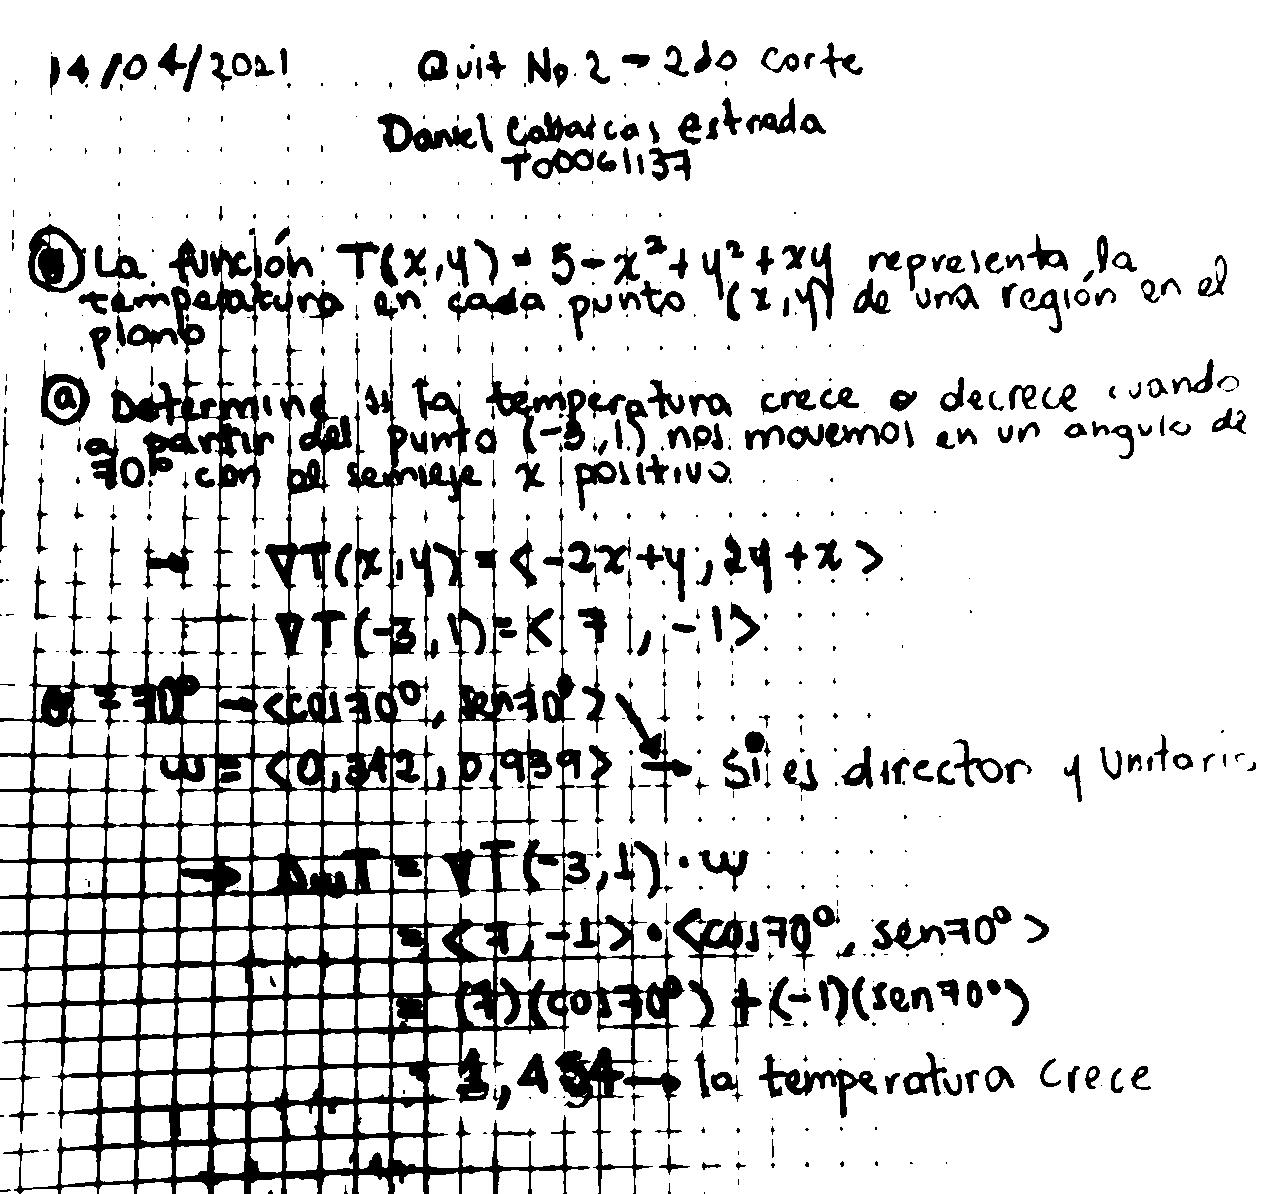 14/04/2021 Quit No. 2 - 2do corte
Daniel Cabarcas estrada
T00061137
La función T(x,y) = 5-x²+y²+xy representa la
temperatura en cada punto (x,y) de una región en el
plano
(a) Determine si la temperatura crece o decrece cuando
a partir del punto (-3,1) nos movemos en un angulo de
70° con el semieje x positivo
→ ∇T(x,y) = <-2x+y, 2y+x>
∇T(-3,1) = <7, -1>
θ = 70° → <cos70°, sen70°>
w = <0,342, 0,939> → Si es director y Unitario
→ DwT = ∇T(-3,1)·w
= <7, -1> · <cos70°, sen70°>
= (7)(cos70°) + (-1)(sen70°)
= 1,454 → la temperatura crece